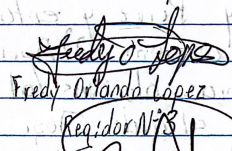 Fredy O Lopez
Fredy Orlando López
Regidor Nº3